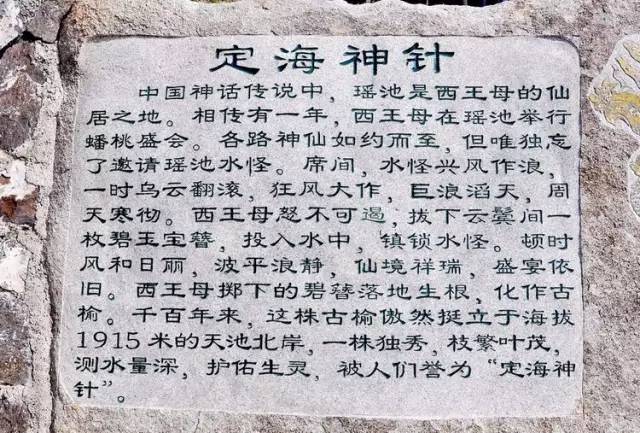 定海神针
中国神话传说中，瑶池是西王母的仙
居之地。相传有一年，西王母在瑶池举行
蟠桃盛会。各路神仙如约而至，但唯独忘
了邀请瑶池水怪。席间，水怪兴风作浪，
一时乌云翻滚，狂风大作，巨浪滔天，周
天寒彻。西王母怒不可遏，拔下云鬓间一
枚碧玉宝簪，投入水中，镇锁水怪。顿时
风和日丽，波平浪静，仙境祥瑞，盛宴依
旧。西王母掷下的碧簪落地生根，化作古
榆。千百年来，这株古榆傲然挺立于海拔
1915米的天池北岸，一株独秀，枝繁叶茂，
测水量深，护佑生灵，被人们誉为“定海神
针”。